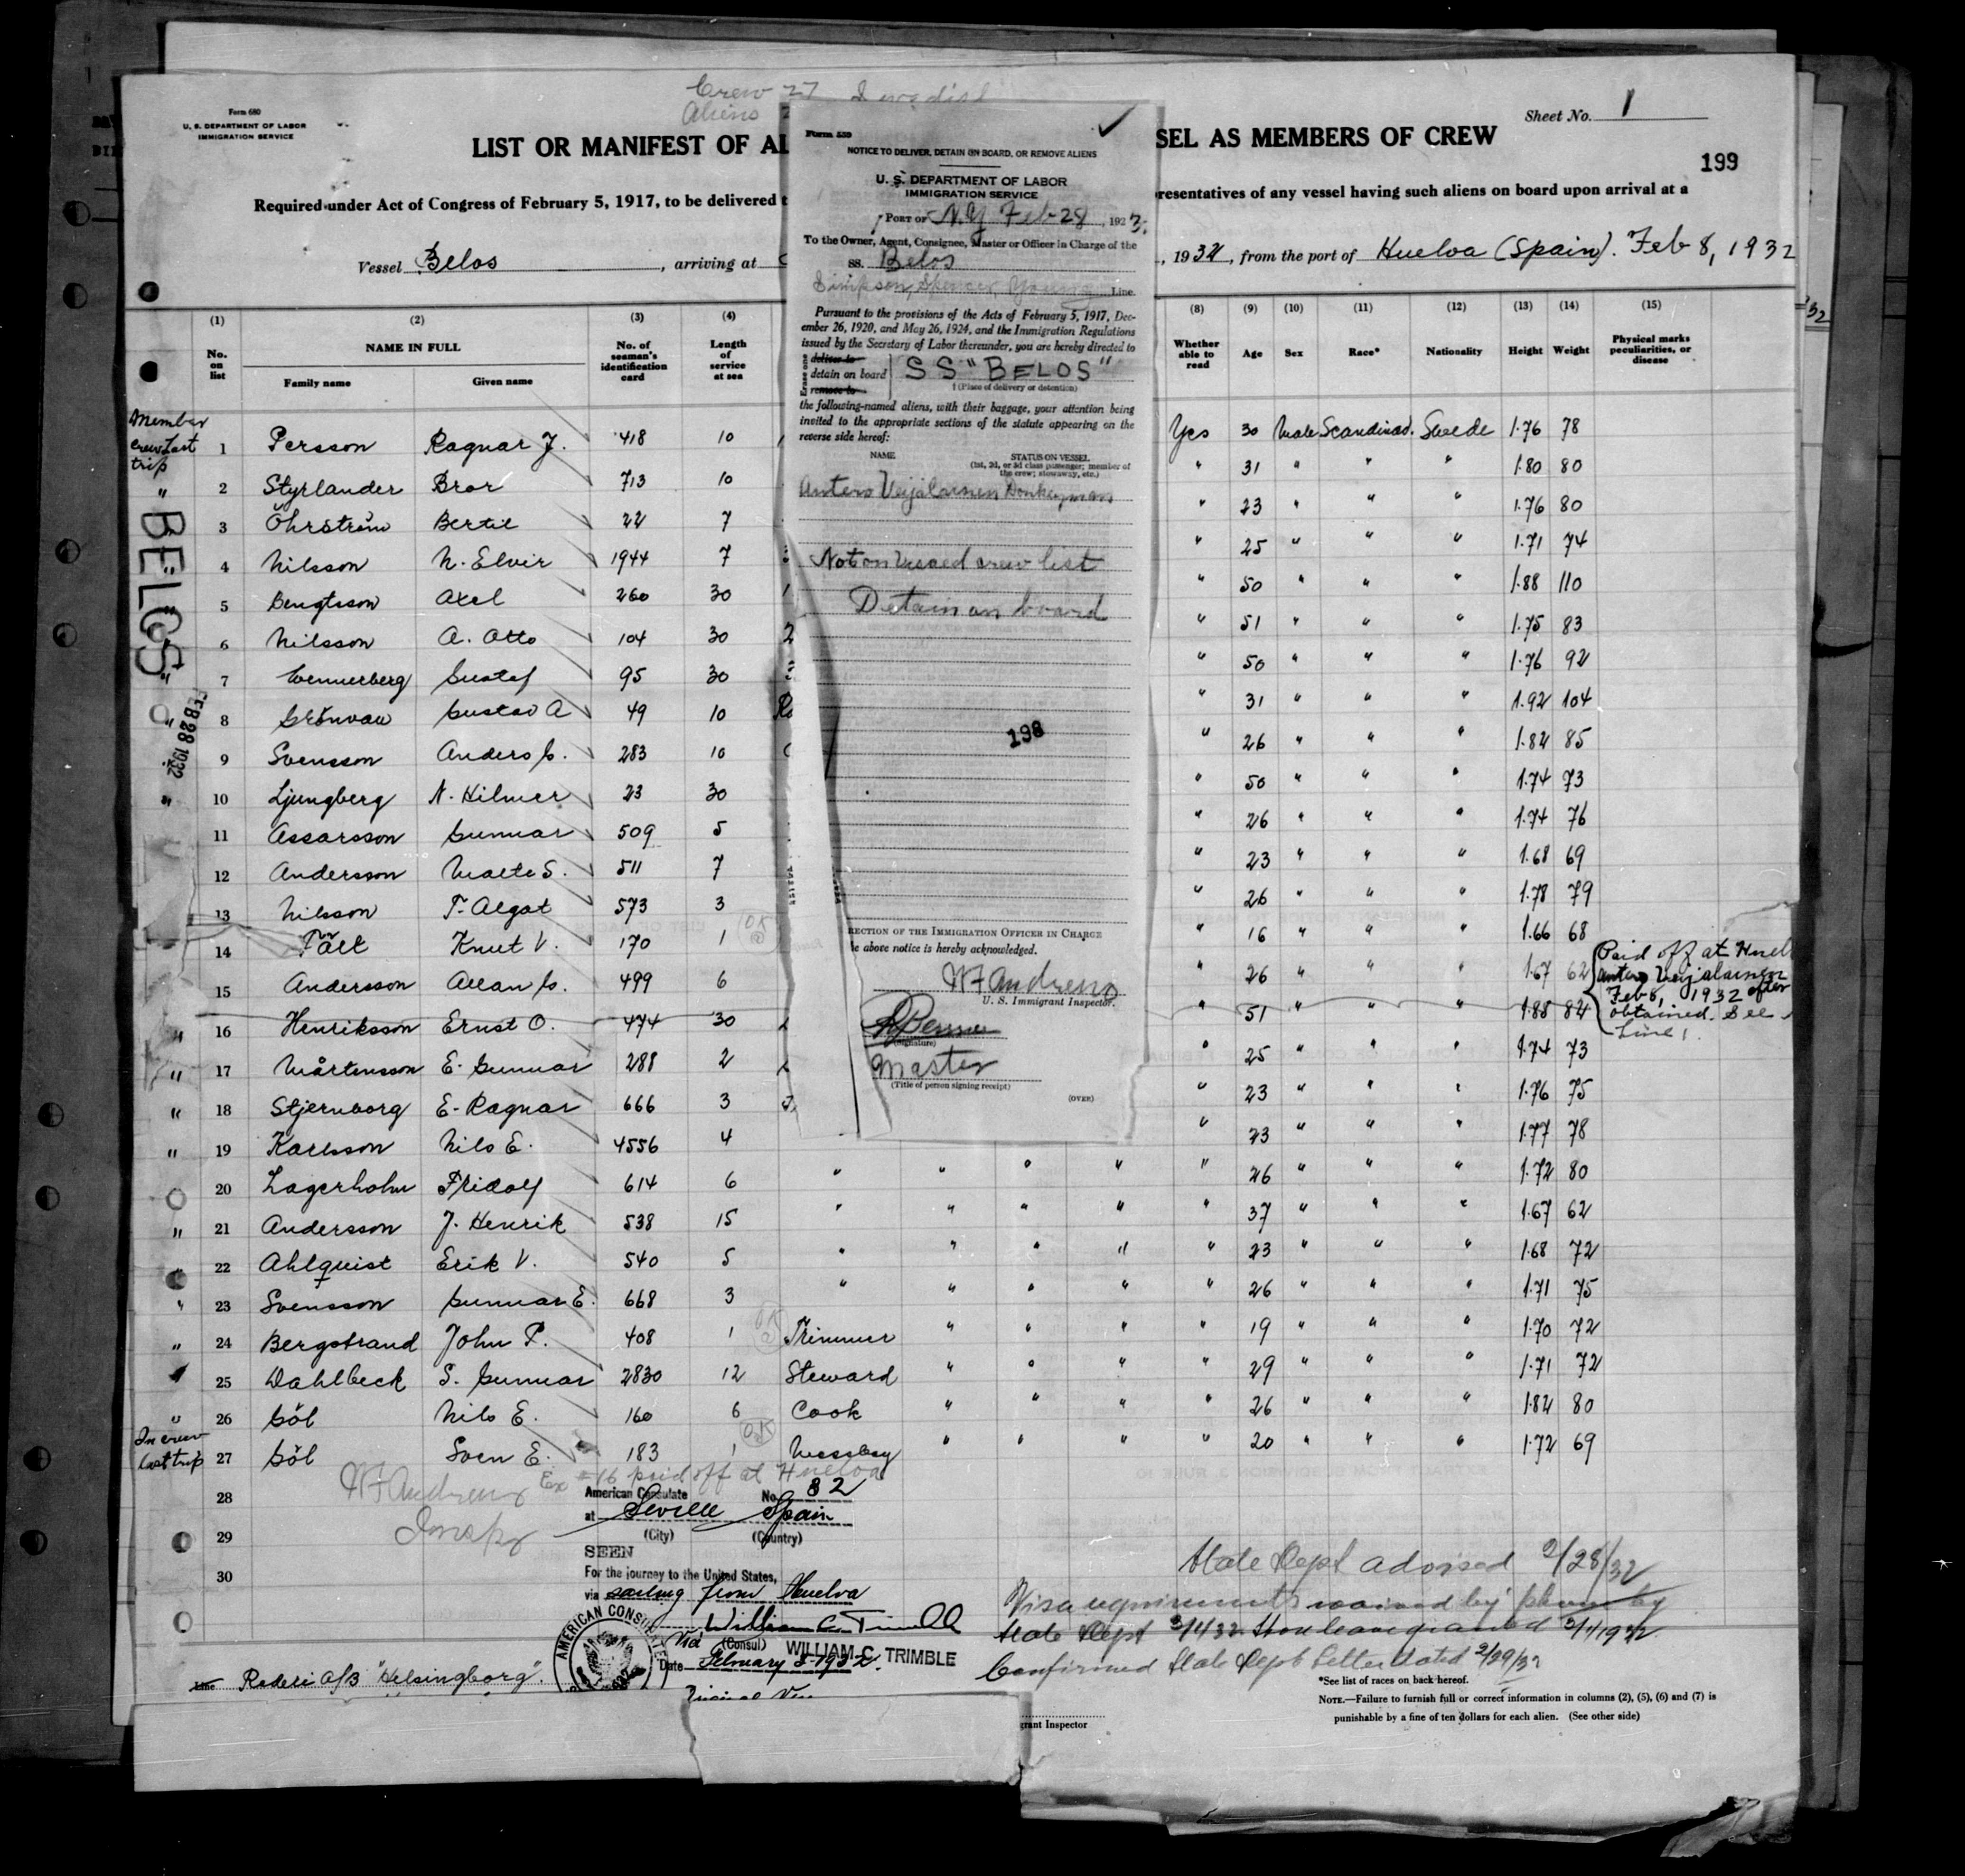 Crew 27 Swedish
Aliens
Form 680
U. S. DEPARTMENT OF LABOR
IMMIGRATION SERVICE
Sheet No. 1
LIST OR MANIFEST OF AL
SEL AS MEMBERS OF CREW
199
Required under Act of Congress of February 5, 1917, to be delivered t
presentatives of any vessel having such aliens on board upon arrival at a
Vessel Belos, arriving at
, 1932, from the port of Huelva (Spain). Feb 8, 1932
Form 559
NOTICE TO DELIVER, DETAIN ON BOARD, OR REMOVE ALIENS
U. S. DEPARTMENT OF LABOR
IMMIGRATION SERVICE
PORT OF N.Y. Feb 28, 192 3
To the Owner, Agent, Consignee, Master or Officer in Charge of the
SS. Belos
Simpson, Spencer, Young Line
Pursuant to the provisions of the Acts of February 5, 1917, Dec-
ember 26, 1920, and May 26, 1924, and the Immigration Regulations
issued by the Secretary of Labor thereunder, you are hereby directed to
Erase one
deliver to
detain on board SS "BELOS"
remove to
† (Place of delivery or detention)
the following-named aliens, with their baggage, your attention being
invited to the appropriate sections of the statute appearing on the
reverse side hereof:
NAME STATUS ON VESSEL
(1st, 2d, or 3d class passenger; member of
the crew; stowaway, etc.)
Antero Veijalainen Donkeyman
Not on Visaed crew list
Detain on board
198
RECTION OF THE IMMIGRATION OFFICER IN CHARGE
he above notice is hereby acknowledged.
W F Andrews
U. S. Immigrant Inspector.
(Signature)
Master
(Title of person signing receipt)
(OVER)
(1) (2) (3) (4) (8) (9) (10) (11) (12) (13) (14) (15)
No. on list NAME IN FULL Family name Given name No. of seaman's identification card Length of service at sea Whether able to read Age Sex Race* Nationality Height Weight Physical marks peculiarities, or disease
Member
crew last
trip
BELOS
FEB 28 1932
1 Persson Ragnar J. 418 10 Yes 30 Male Scandinav. Swede 1.76 78
2 Styrlander Bror 713 10 " 31 " " " 1.80 80
3 Öhrström Bertil 22 7 " 23 " " " 1.76 80
4 Nilsson N. Elvir 1944 7 " 25 " " " 1.71 74
5 Bengtsson Axel 260 30 " 50 " " " 1.88 110
6 Nilsson A. Otto 104 30 " 51 " " " 1.75 83
7 Wennerberg Gustaf 95 30 " 50 " " " 1.76 92
8 Grönvall Gustav A 49 10 " 31 " " " 1.92 104
9 Svensson Anders G. 283 10 " 26 " " " 1.82 85
10 Ljungberg N. Hilmer 23 30 " 50 " " " 1.74 73
11 Assarsson Gunnar 509 5 " 26 " " " 1.74 76
12 Andersson Malte S. 511 7 " 23 " " " 1.68 69
13 Nilsson T. Algot 573 3 " 26 " " " 1.78 79
14 Fält Knut V. 170 1 OK " 16 " " " 1.66 68
15 Andersson Allan G. 499 6 " 26 " " " 1.67 62
16 Henriksson Ernst O. 474 30 " 51 " " " 1.88 84
Paid off at Huel
Antero Veijalainen
Feb 8, 1932 after
obtained. See
Line 1
17 Mårtensson E. Gunnar 288 2 " 25 " " " 1.74 73
18 Stjernborg E. Ragnar 666 3 " 23 " " " 1.76 75
19 Karlsson Nils E. 4556 4 " 23 " " " 1.77 78
20 Lagerholm Fridolf 614 6 " " " " " 26 " " " 1.72 80
21 Andersson J. Henrik 538 15 " " " " " 37 " " " 1.67 62
22 Ahlquist Erik V. 540 5 " " " " " 23 " " " 1.68 72
23 Svensson Gunnar E. 668 3 " " " " " 26 " " " 1.71 75
24 Bergstrand John P. 408 1 OK Trimmer " " " " 19 " " " 1.70 72
25 Dahlbeck S. Gunnar 2830 12 Steward " " " " 29 " " " 1.71 72
26 Göl Nils E. 160 6 Cook " " " " 26 " " " 1.82 80
In crew
last trip
27 Göl Sven E. 183 1 OK Messboy " " " " 20 " " " 1.72 69
Ex #16 paid off at Huelva
W F Andrews
Inspr
28
29
30
American Consulate No. 82
at Seville Spain
(City) (Country)
SEEN
For the journey to the United States,
via sailing from Huelva
William C. Trimble
(Consul) WILLIAM C. TRIMBLE
Date February 8 1932.
AMERICAN CONSUL
State Dept advised 2/28/32
Visa requirements waived by phone by
State Dept 3/1/32. Shore leave granted 3/1/1932
Confirmed State Dept letter dated 2/29/32
Line Rederi A/B "Helsingborg".
*See list of races on back hereof.
NOTE.—Failure to furnish full or correct information in columns (2), (5), (6) and (7) is
punishable by a fine of ten dollars for each alien. (See other side)
grant Inspector